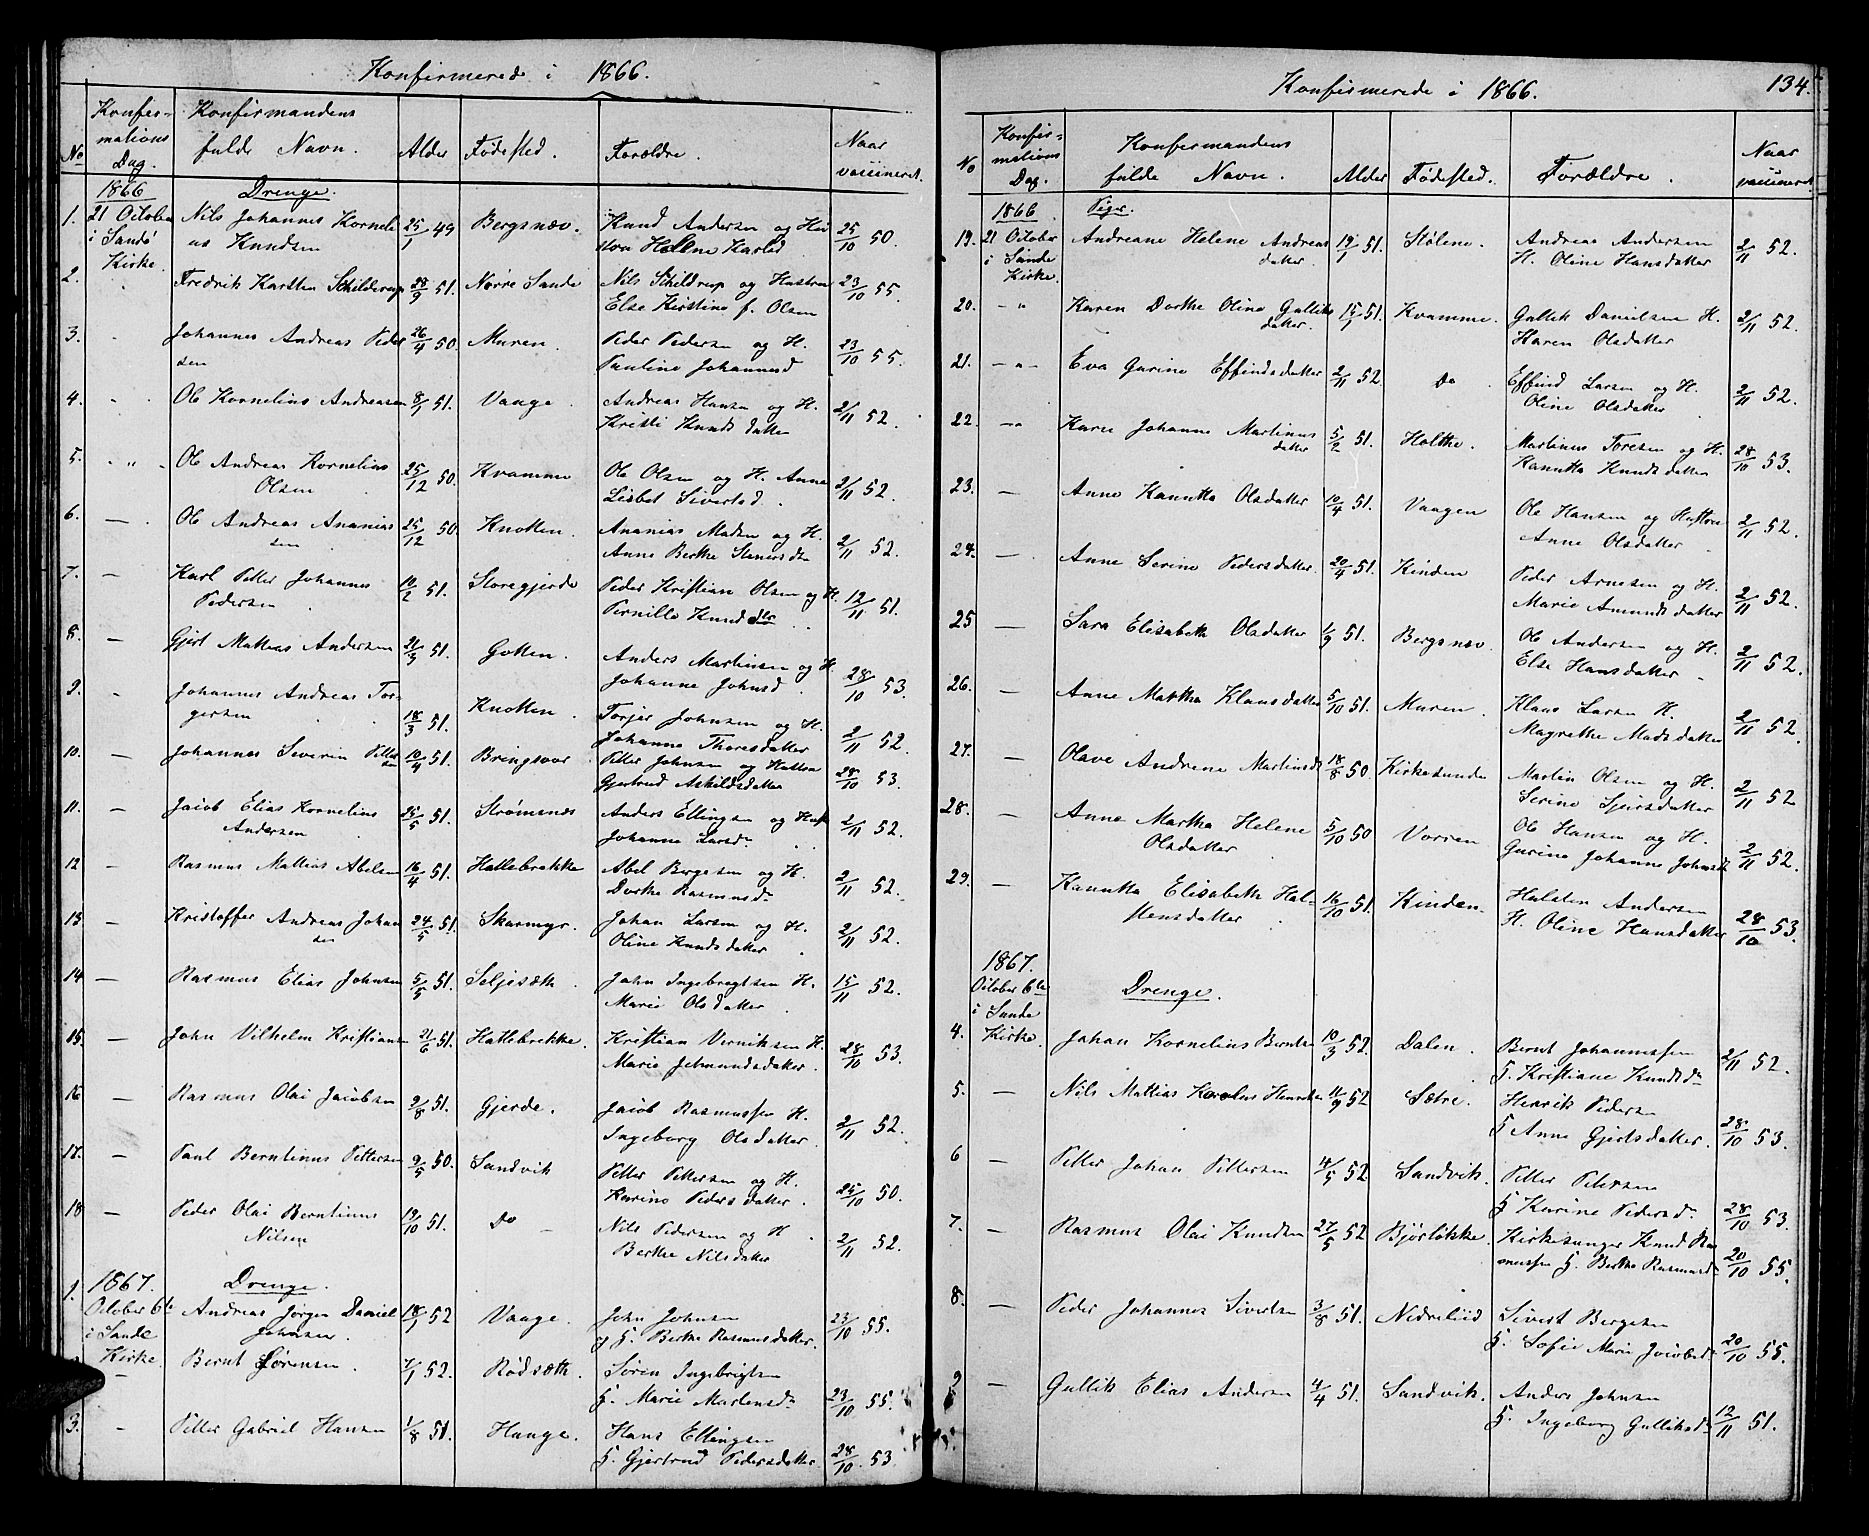 Konfirmerede i 1866.
No Konfir-mations Dag. Konfirmandens fulde Navn. Alder Fødested. Forældre. Naar vaccineret.
1866 Drenge.
1. 21 October i Sandø Kirke. Nils Johannes Korneli 25/1 49 Bergsnæv. Knud Andersen og Hu 25/10 50.
us Knudsen stru Helene Karlsd
2. Fredrik Karsten Schilderup 28/9 51. Nørre Sande Nils Schildrup og Hustru 23/10 55.
Else Kirstine f. Olsen
3. Johannes Andreas Peder 26/4 50. Muren. Peder Pedersen og H. 23/10 55.
sen Pauline Johannesd
4. Ole Kornelius Andreasen 8/1 51. Vaage. Andreas Hansen og H. 2/11 52.
Kristi Knuds datter
5. Ole Andreas Kornelius 25/12 50. Kvamme Ole Olsen og H. Anne 2/11 52.
Olsen Lisbet Sivertsd.
6. Ole Andreas Ananias 25/12 50. Knotten. Ananias Madsen og H. 2/11 52.
sen Anne Berthe Steners dtr
7. Karl Petter Johannes 10/2 51. Storegjerde Peder Kristian Olsen og H. 12/11 51.
Pedersen Pernille Knud dtr
8. Gjert Mathias Andersen 21/3 51. Gotten. Anders Martinsen og H 28/10 53.
Johanne Johnsd.
9. Johannes Andreas Tor- 18/3 51. Knotten. Torjer Johnsen og H. 2/11 52.
gersen Johanne Thoresdatter
10. Johannes Severin Petter 10/4 51. Bringsvor Petter Johnsen og Hustru 28/10 53.
sen Gjertrud Askildsdatter
11. Jacob Elias Kornelius 25/5 51. Strømsnæs Anders Ellingsen og Hust 2/11 52.
Andersen Johanne Larsdr
12 Rasmus Mathias Abelsen 16/4 51. Hattebrekke Abel Børgesen og H. 2/11 52.
Dorthe Rasmusdr
13 Kristoffer Andreas Johan 24/5 51. Skarmyr. Johan Larsen og H. 2/11 52.
sen Oline Knuds datter
14 Rasmus Elias Johnsen 5/5 51. Seljesæth. John Ingebregtsen H. 15/11 52.
Marie Olsdatter.
15. John Vilhelm Kristiansen 21/6 51. Hattebrekke. Kristian Verniksen H. 28/10 53.
Marie Jetmundsdatter.
16. Rasmus Olai Jacobsen 9/8 51. Gjerde. Jacob Rasmussen H. 2/11 52.
Ingeborg Olsdatter.
17. Paul Berntinus Pettersen 9/5 50. Sandvik Petter Pettersen og H. 25/10 50.
Karine Peders datter.
18 Peder Olai Berntinus 19/10 51. Do Nils Pedersen og H. 2/11 52.
Nilsen Berthe Nilsdatter
1867. Drenge.
1. October 6te i Sande Kirke. Andreas Jørgen Daniel 18/1 52 Vaage. John Johnsen 23/10 55.
Johnsen. og H. Berthe Rasmusdatter.
Bernt Sørensen. 7/1 52. Rødsæth. Søren Ingebrigtsen
H. Marie Martensdr 23/10 55.
3. Petter Gabriel Hansen 1/8 51. Hauge. Hans Ellingsen
H. Gjertrud Pedersdatter 28/10 53
Konfirmerede i 1866. 134.
No Konfir-mations Dag. Konfirmandens fulde Navn. Alder Fødested. Forældre. Naar vaccineret
1866. Piger.
19. 21 October i Sande Kirke Andreane Helene Andreas 19/1 51. Stølene. Andreas Andersen 2/11 52.
datter. H. Oline Hansdatter
20. Karen Dorthe Oline Galliks 15/1 51. Kvamme. Gullik Danielsen H. 2/11 52.
datter. Karen Olsdatter
21. Eva Gurine Effindsdatter 2/11 52. Do Effind Larsen og H. 2/11 52.
Oline Olsdatter
22. Karen Johanne Martinus 5/2 51. Holthe. Martinus Toresen og H. 28/10 53.
datter Kanutta Knudsdatter
23. Anne Kanutta Olsdatter 10/4 51. Vaagen Ole Hansen og Hustru 2/11 52.
Anne Olsdatter
24. Anne Serine Pedersdatter. 20/4 51. Kinden Peder Arnesen og H. 2/11 52.
Marie Amunds datter
25 Sara Elisabeth Olsdatter 1/9 51. Bergsnæv. Ole Andersen og H. 2/11 52.
Else Hansdatter
26. Anne Martha Klausdatter 5/10 51. Muren. Klaus Larsen H. 2/11 52.
Magrethe Madsdatter
27. Olave Andrine Martinsdr 18/8 50 Kirkesunde Martin Olsen og H. 2/11 52
Serine Sjursdatter
28. Anne Martha Helene 5/10 50 Vorren Ole Hansen og H. 2/11 52.
Olsdatter Gurine Johanne Johnsd
29. Kanutta Elisabeth Hal- 16/10 51. Kinden Halsten Andersen 28/10 53.
stensdatter H. Oline Hansdatter
1867. October 6te i Sande Kirke
Drenge.
4. Johan Kornelius Berntsen 10/3 52. Dalen. Bernt Johannessen 2/11 52.
H. Kristiane Knudsdr
5. Nils Mathias Karolus Henriksen 11/9 52 Sætre. Henrik Pedersen
H Anne Gjertsdatter. 28/10 53.
6 Petter Johan Pettersen 4/5 52 Sandvik. Petter Petersen
H Karine Pedersdr 28/10 53.
7. Rasmus Olai Knudsen 27/5 52 Bjørløkke. Kirkesanger Knud Ras
mussen H. Berthe Rasmusdr 20/10 55.
8. Peder Johannes Sivertsen 3/8 51. Nedreliid Sivert Bergesen
H. Sofie Marie Jacobsdr 20/10 55.
9 Gullik Elias Andersen 4/4 51. Sandvik. Anders Johnsen
H. Ingeborg Gulliksdr 12/11 51.